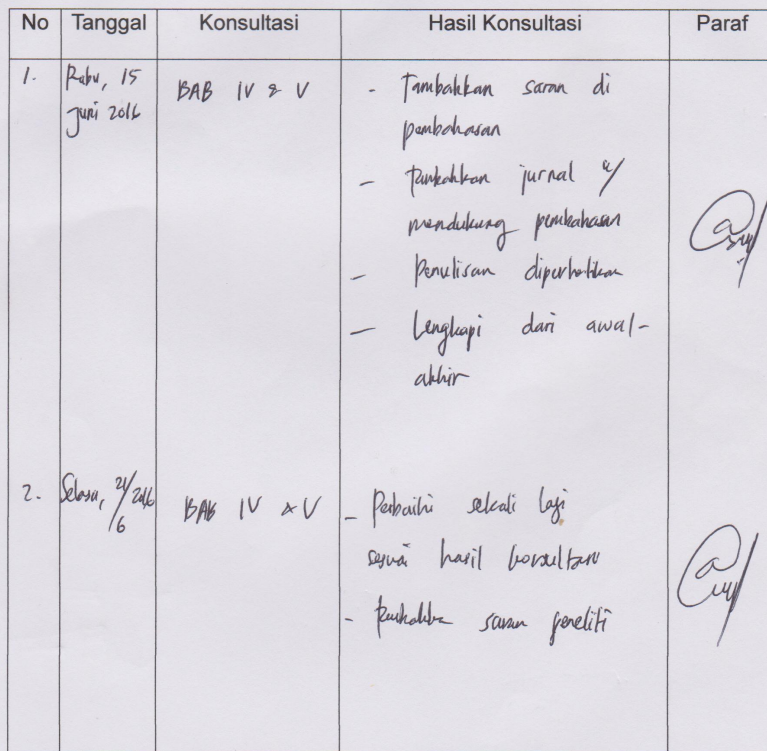 No Tanggal Konsultasi Hasil Konsultasi Paraf
1. Rabu, 15 BAB IV & V - Tambahkan saran di
Juni 2016 pembahasan
- Tambahkan jurnal u/
mendukung pembahasan
- Penulisan diperhatikan
- Lengkapi dari awal-
akhir
2. Selasa, 21/6 2016 BAB IV & V - Perbaiki sekali lagi
sesuai hasil konsultasi
- Tambahkan saran peneliti